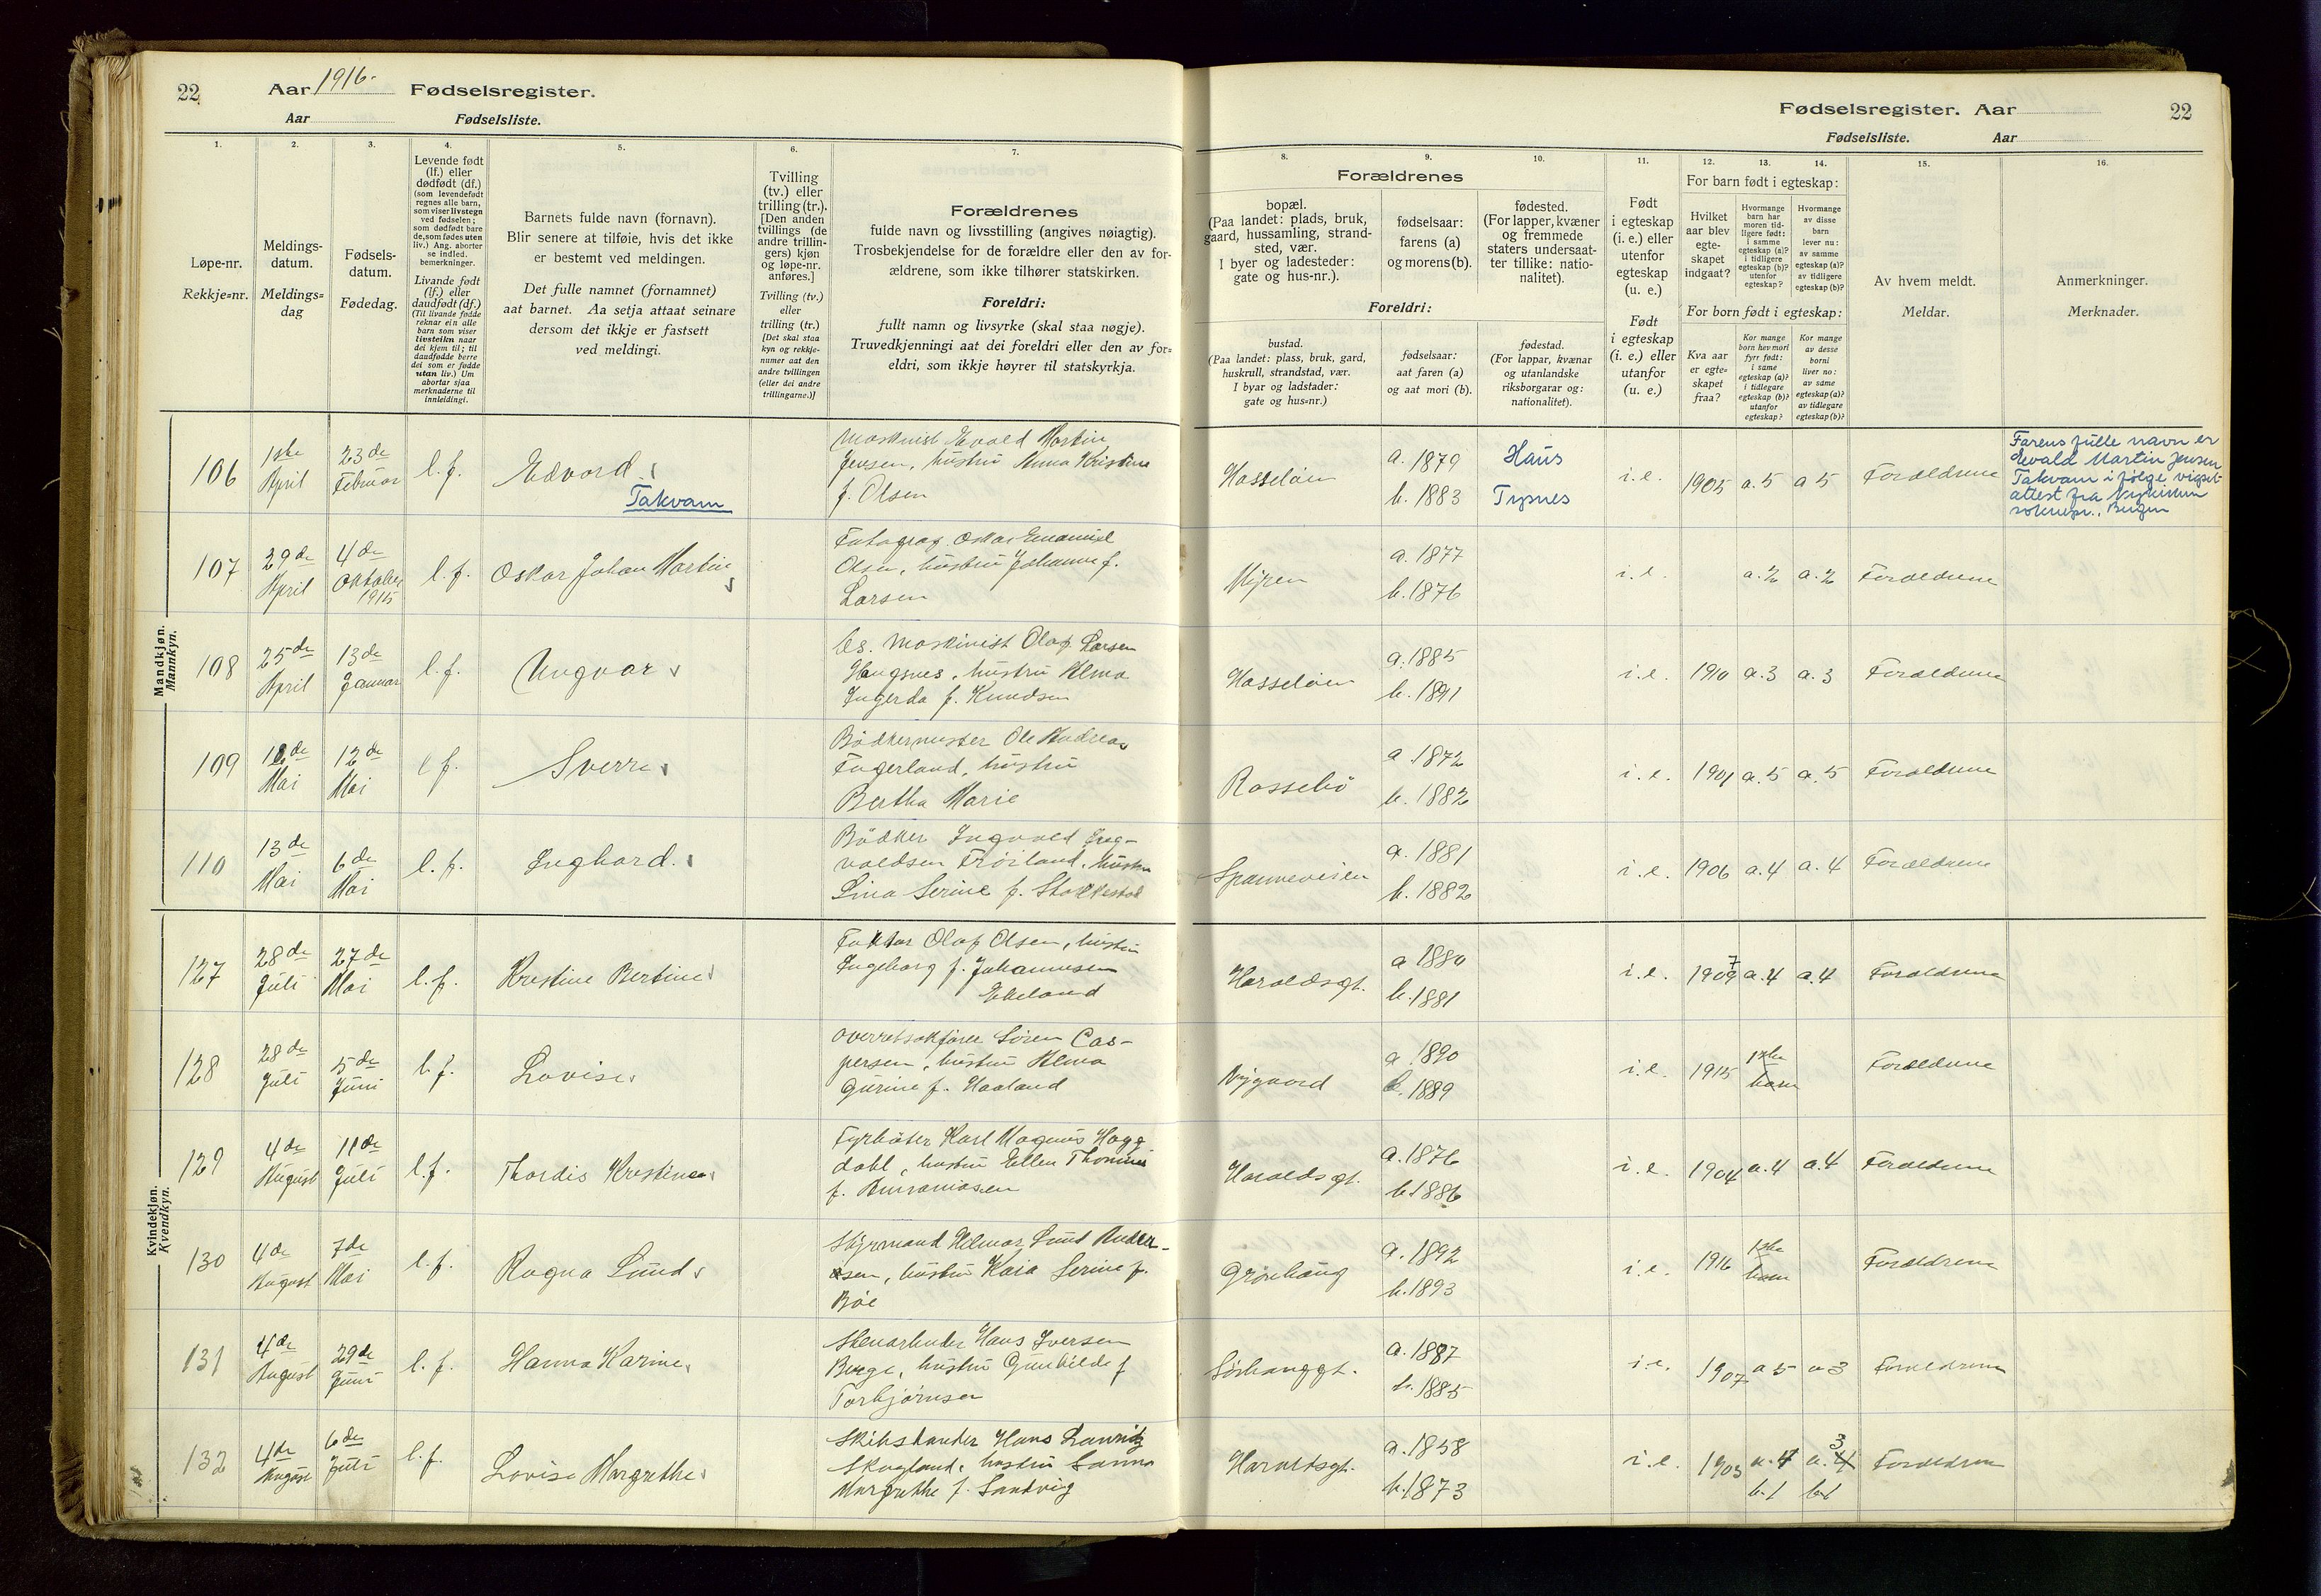 22
Aar 1916. Fødselsregister.
Aar Fødselsliste.
Fødselsregister. Aar
22
Fødselsliste. Aar
1.
Løpe-nr.
Rekkje=nr.
2.
Meldings-
datum.
Meldings=
dag
3.
Fødsels-
datum.
Fødedag.
4.
Levende født
(lf.) eller
dødfødt (df.)
(som levendefødt
regnes alle barn,
som viser livstegn
ved fødselen;
som dødfødt bare
de, som fødes uten
liv.) Ang. aborter
se indled.
bemerkninger.
Livande født
(lf.) eller
daudfødt (df.)
(Til livande fødde
reknar ein alle
barn som viser
livsteikn naar
dei kjem til; til
daudfødde berre
dei som er fødde
utan liv.) Um
abortar sjaa
merknaderne til
innleidingi.
5.
Barnets fulde navn (fornavn).
Blir senere at tilføie, hvis det ikke
er bestemt ved meldingen.
Det fulle namnet (fornamnet)
aat barnet. Aa setja attaat seinare
dersom det ikkje er fastsett
ved meldingi.
6.
Tvilling
(tv.) eller
trilling (tr.).
[Den anden
tvillings (de
andre trillin-
gers) kjøn
og løpe-nr.
anføres.]
Tvilling (tv.)
eller
trilling (tr.)
[Det skal staa
kyn og rekkje-
numer aat den
andre tvillingen
(eller dei andre
trillingarne.)]
7.
Forældrenes
fulde navn og livsstilling (angives nøiagtig).
Trosbekjendelse for de forældre eller den av for-
ældrene, som ikke tilhører statskirken.
Foreldri:
fullt namn og livsyrke (skal staa nøgje).
Truvedkjenningi aat dei foreldri eller den av for=
eldri, som ikkje høyrer til statskyrkja.
Forældrenes
8.
bopæl.
(Paa landet: plads, bruk,
gaard, hussamling, strand-
sted, vær.
I byer og ladesteder:
gate og hus-nr.).
9.
fødselsaar:
farens (a)
og morens (b).
10.
fødested.
(For lapper, kvæner
og fremmede
staters undersaat-
ter tillike: natio-
nalitet).
Foreldri:
bustad.
(Paa landet: plass, bruk, gard,
huskrull, strandstad, vær.
I byar og ladstader:
gate og hus=nr.)
fødselsaar:
aat faren (a)
og aat mori (b).
fødestad.
(For lappar, kvænar
og utanlandske
riksborgarar og:
nationalitet).
11.
Født
i egteskap
(i. e.) eller
utenfor
egteskap
(u. e.)
Født
i egteskap
(i. e.) eller
utanfor
(u. e.)
12. 13. 14.
For barn født i egteskap:
Hvilket
aar blev
egte-
skapet
indgaat?
Hvormange
barn har
moren tid-
ligere født:
i samme
egteskap (a)?
i tidligere
egteskap (b)?
utenfor
egteskap?
Hvormange
av disse
barn
lever nu:
av samme
egteskap (a)?
av tidligere
egteskap (b)?
For born født i egteskap:
Kva aar
er egte-
skapet
fraa?
Kor mange
born hev mori
fyrr født:
i same
egteskap (a)?
i tidlegare
egteskap (b)?
utanfor
egteskap?
Kor mange
av desse
borni
liver no:
av same
egteskap (a)?
av tidlegare
egteskap (b)?
15.
Av hvem meldt.
Meldar.
16.
Anmerkninger.
Merknader.
Mandkjøn.
Mannkyn.
106
1ste
April
23de
Februar
l.f.
Edvard
Takvam
Maskinist Evald Martin
Jensen, hustru Anna Kristine
f. Olsen
Hasseløen
a. 1879
b. 1883
Haus
Tysnes
i.e.
1905
a. 5
a 5
Forældrene
Farens fulle navn er
Evald Martin Jensen
Takvam i følge vigsel-
attest fra Nykirken
soknepr., Bergen
107
29de
April
4de
Oktober
1915
l.f.
Oskar Johan Martin
Fotograf Oskar Emanuel
Olsen, hustru Johanne f.
Larsen
Myren
a. 1877
b. 1876
i.e.
a. 2
a. 2
Forældrene
108
25de
April
13de
Januar
l.f.
Yngvar
Maskinist Olaf Larsen
Haugsnes, hustru Alma
Ingerda f. Knudsen
Hasseløen
a. 1885
b. 1891
i.e.
1910
a. 3
a. 3
Forældrene
109
Mai
12de
Mai
l f.
Sverre
Bødkermester Ole Andreas
Fagerland, hustru
Bertha Marie
Rossebø
a 1872
b. 1882
i.e.
1901
a. 5
a. 5
Forældrene
110
13de
Mai
6de
Mai
l.f.
Inghard.
Bødker Ingvald Ing-
valdsen Frøiland, hustru
Lina Serine f. Stakkestad
Spanneveien
a. 1881
b. 1882
i.e.
1906
a. 4
a. 4
Forældrene
Kvindekjøn.
Kvendkyn.
127
28de
Juli
27de
Mai
l.f.
Kristine Bertine
Faktor Olaf Olsen, hustru
Ingeborg f. Johannesen
Ekeland
Haraldsgt.
a 1880
b. 1881
i.e.
1907
a. 4
a. 4
Forældrene
128
28de
Juli
5de
Juni
l.f.
Lovise
Overretssakfører Søren Cas-
persen, hustru Alma
Gurine f. Haaland
Nygaard
a 1890
b. 1889
i.e.
1915
1ste
barn
Forældrene
129
4de
August
11de
Juli
l.f.
Thordis Kristine
Fyrbøter Karl Magnus Hagg
dahl, hustru Ellen Thomine
f. Annaniasen
Haraldsgt.
a. 1876
b. 1886
i.e.
1904
a. 4
a. 4
Forældrene
130
4de
August
7de
Mai
l.f.
Ragna Lund
Styrmand Hilmar Lund Ander-
sen, hustru Kaia Serine f.
Bøe
Grønhaug
a. 1892
b. 1893
i.e.
1916
1ste
barn
Forældrene
131
4de
August
29de
Juni
l.f.
Hanna Karine
Stenarbeider Hans Iversen
Berge, hustru Gunhilde f
Torbjørnsen
Sørhauggt.
a. 1887
b. 1885
i.e.
1907
a 5
a 3
Forældrene
132
4de
August
6de
Juli
l.f.
Lovise Margrethe
Skibstømder Hans Lauritz
Skogland, hustru Sanna
Margrethe f. Sandvig
Haraldsgt.
a. 1858
b. 1873
i.e.
1903
a. 4
b. 1
a. 3
b 1
Forældrene